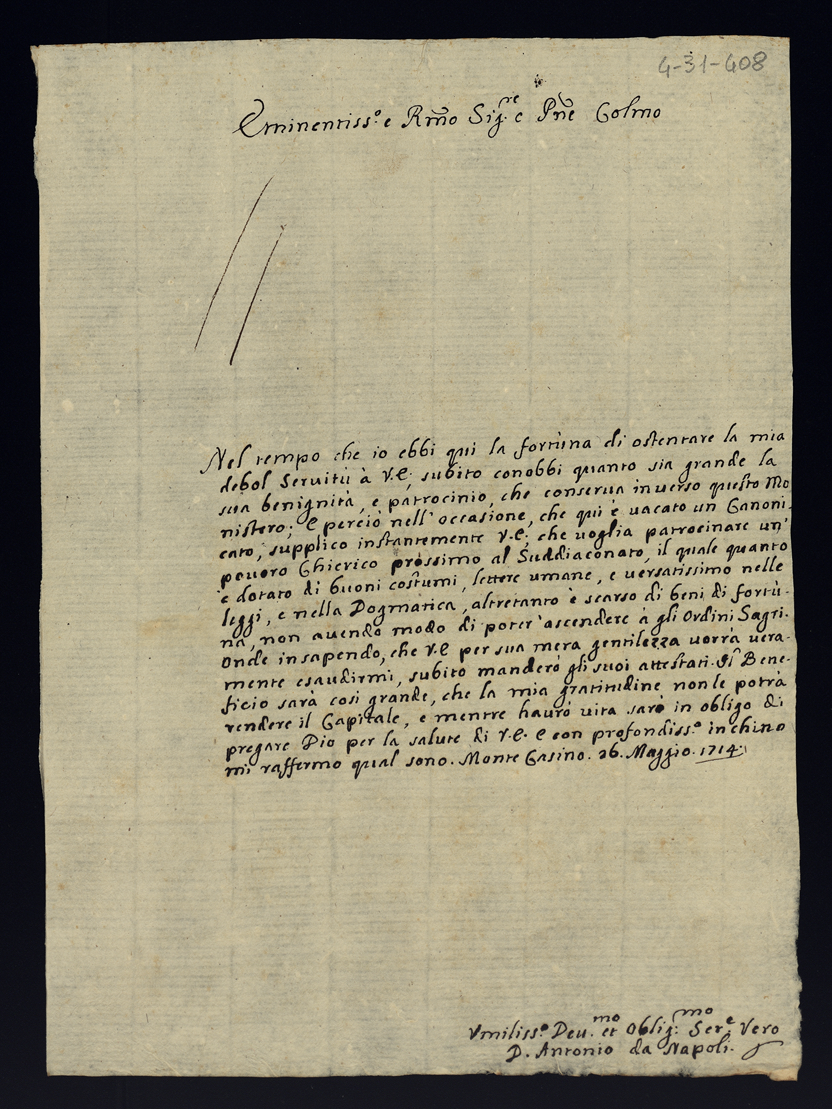 4-31-408
Eminentiss.º e Rmo Sig.re e Pne Colmo
Nel tempo che io ebbi qui la fortuna di ostentare la mia
debol Seruitù à V.E; subito conobbi quanto sia grande la
sua benignità, e patrocinio, che conserua inuerso questo Mo
nistero; E perciò nell'occasione, che qui è vacato un Canoni-
cato, supplico instantemente V.E; che uoglia patrocinare un'
pouoro Chierico prossimo al Suddiaconato, il quale quanto
è dotato di buoni costumi, lettere umane, e uersatissimo nelle
leggi, e nella Dogmatica, altretanto è scarso di beni di fortu-
na, non auendo modo di poter'ascendere à gli Ordini Sagri.
Onde in sapendo, che V.E per sua mera gentilezza uorrà uera-
mente esaudirmi, subito manderò gli suoi attestati. Il Bene-
ficio sarà così grande, che la mia gratitudine non le potrà
rendere il Capitale, e mentre haurò uita sarò in obligo di
pregare Dio per la salute di V.E. E con profondiss.º inchino
mi raffermo qual sono. Monte Casino. 26. Maggio. 1714.
Vmiliss.º Deu.mo et Oblig.mo Ser.e Vero
D. Antonio da Napoli.